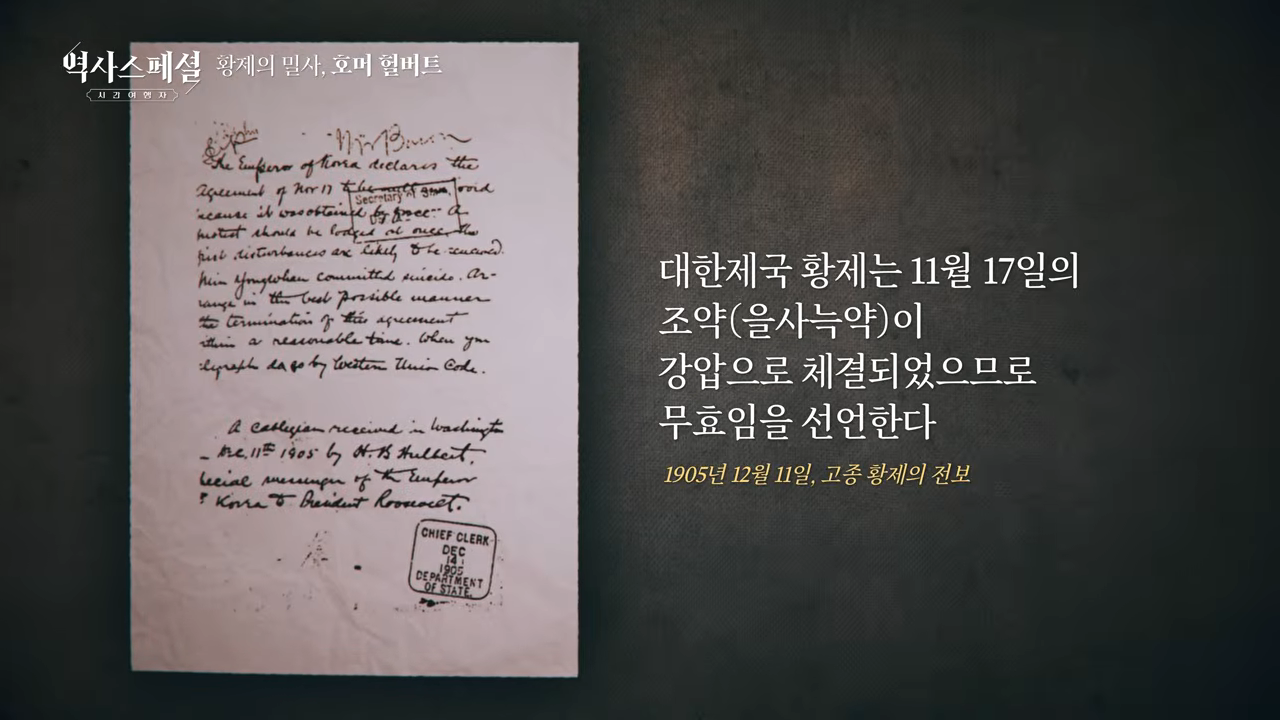 역사스페셜 황제의 밀사, 호머 헐버트
시간여행자
The Emperor of Korea declares the
agreement of Nov 17 to be null and void
because it was obtained by force. A
protest should be lodged at once, the
first disturbances are likely to be renewed.
Min Yongwhan committed suicide. Ar-
range in the best possible manner
the termination of this agreement
within a reasonable time. When you
telegraph do so by Western Union Code.
Secretary of State
A cablegram received in Washington
Dec. 11th 1905 by H. B. Hulbert,
special messenger of the Emperor
of Korea to President Roosevelt.
CHIEF CLERK
DEC
14
1905
DEPARTMENT
OF STATE.
대한제국 황제는 11월 17일의
조약(을사늑약)이
강압으로 체결되었으므로
무효임을 선언한다
1905년 12월 11일, 고종 황제의 전보